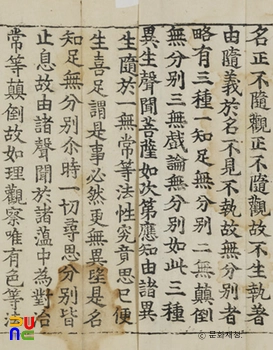 名正不隨觀正不隨故不生執著
由隨義於名不見不執故無分別者
略有三種一知足無分別二無顛倒
無分別三無戲論無分別如此三種
異生聲聞菩薩如次第應知由諸異
生隨於一無常等法性究竟思已便
生喜足謂是事必然更無異望是名
知足無分別尒時一切尋思分別皆
止息故由諸聲聞於諸蘊中為對治
常等顛倒故如理觀察唯有色等
© 문화재청